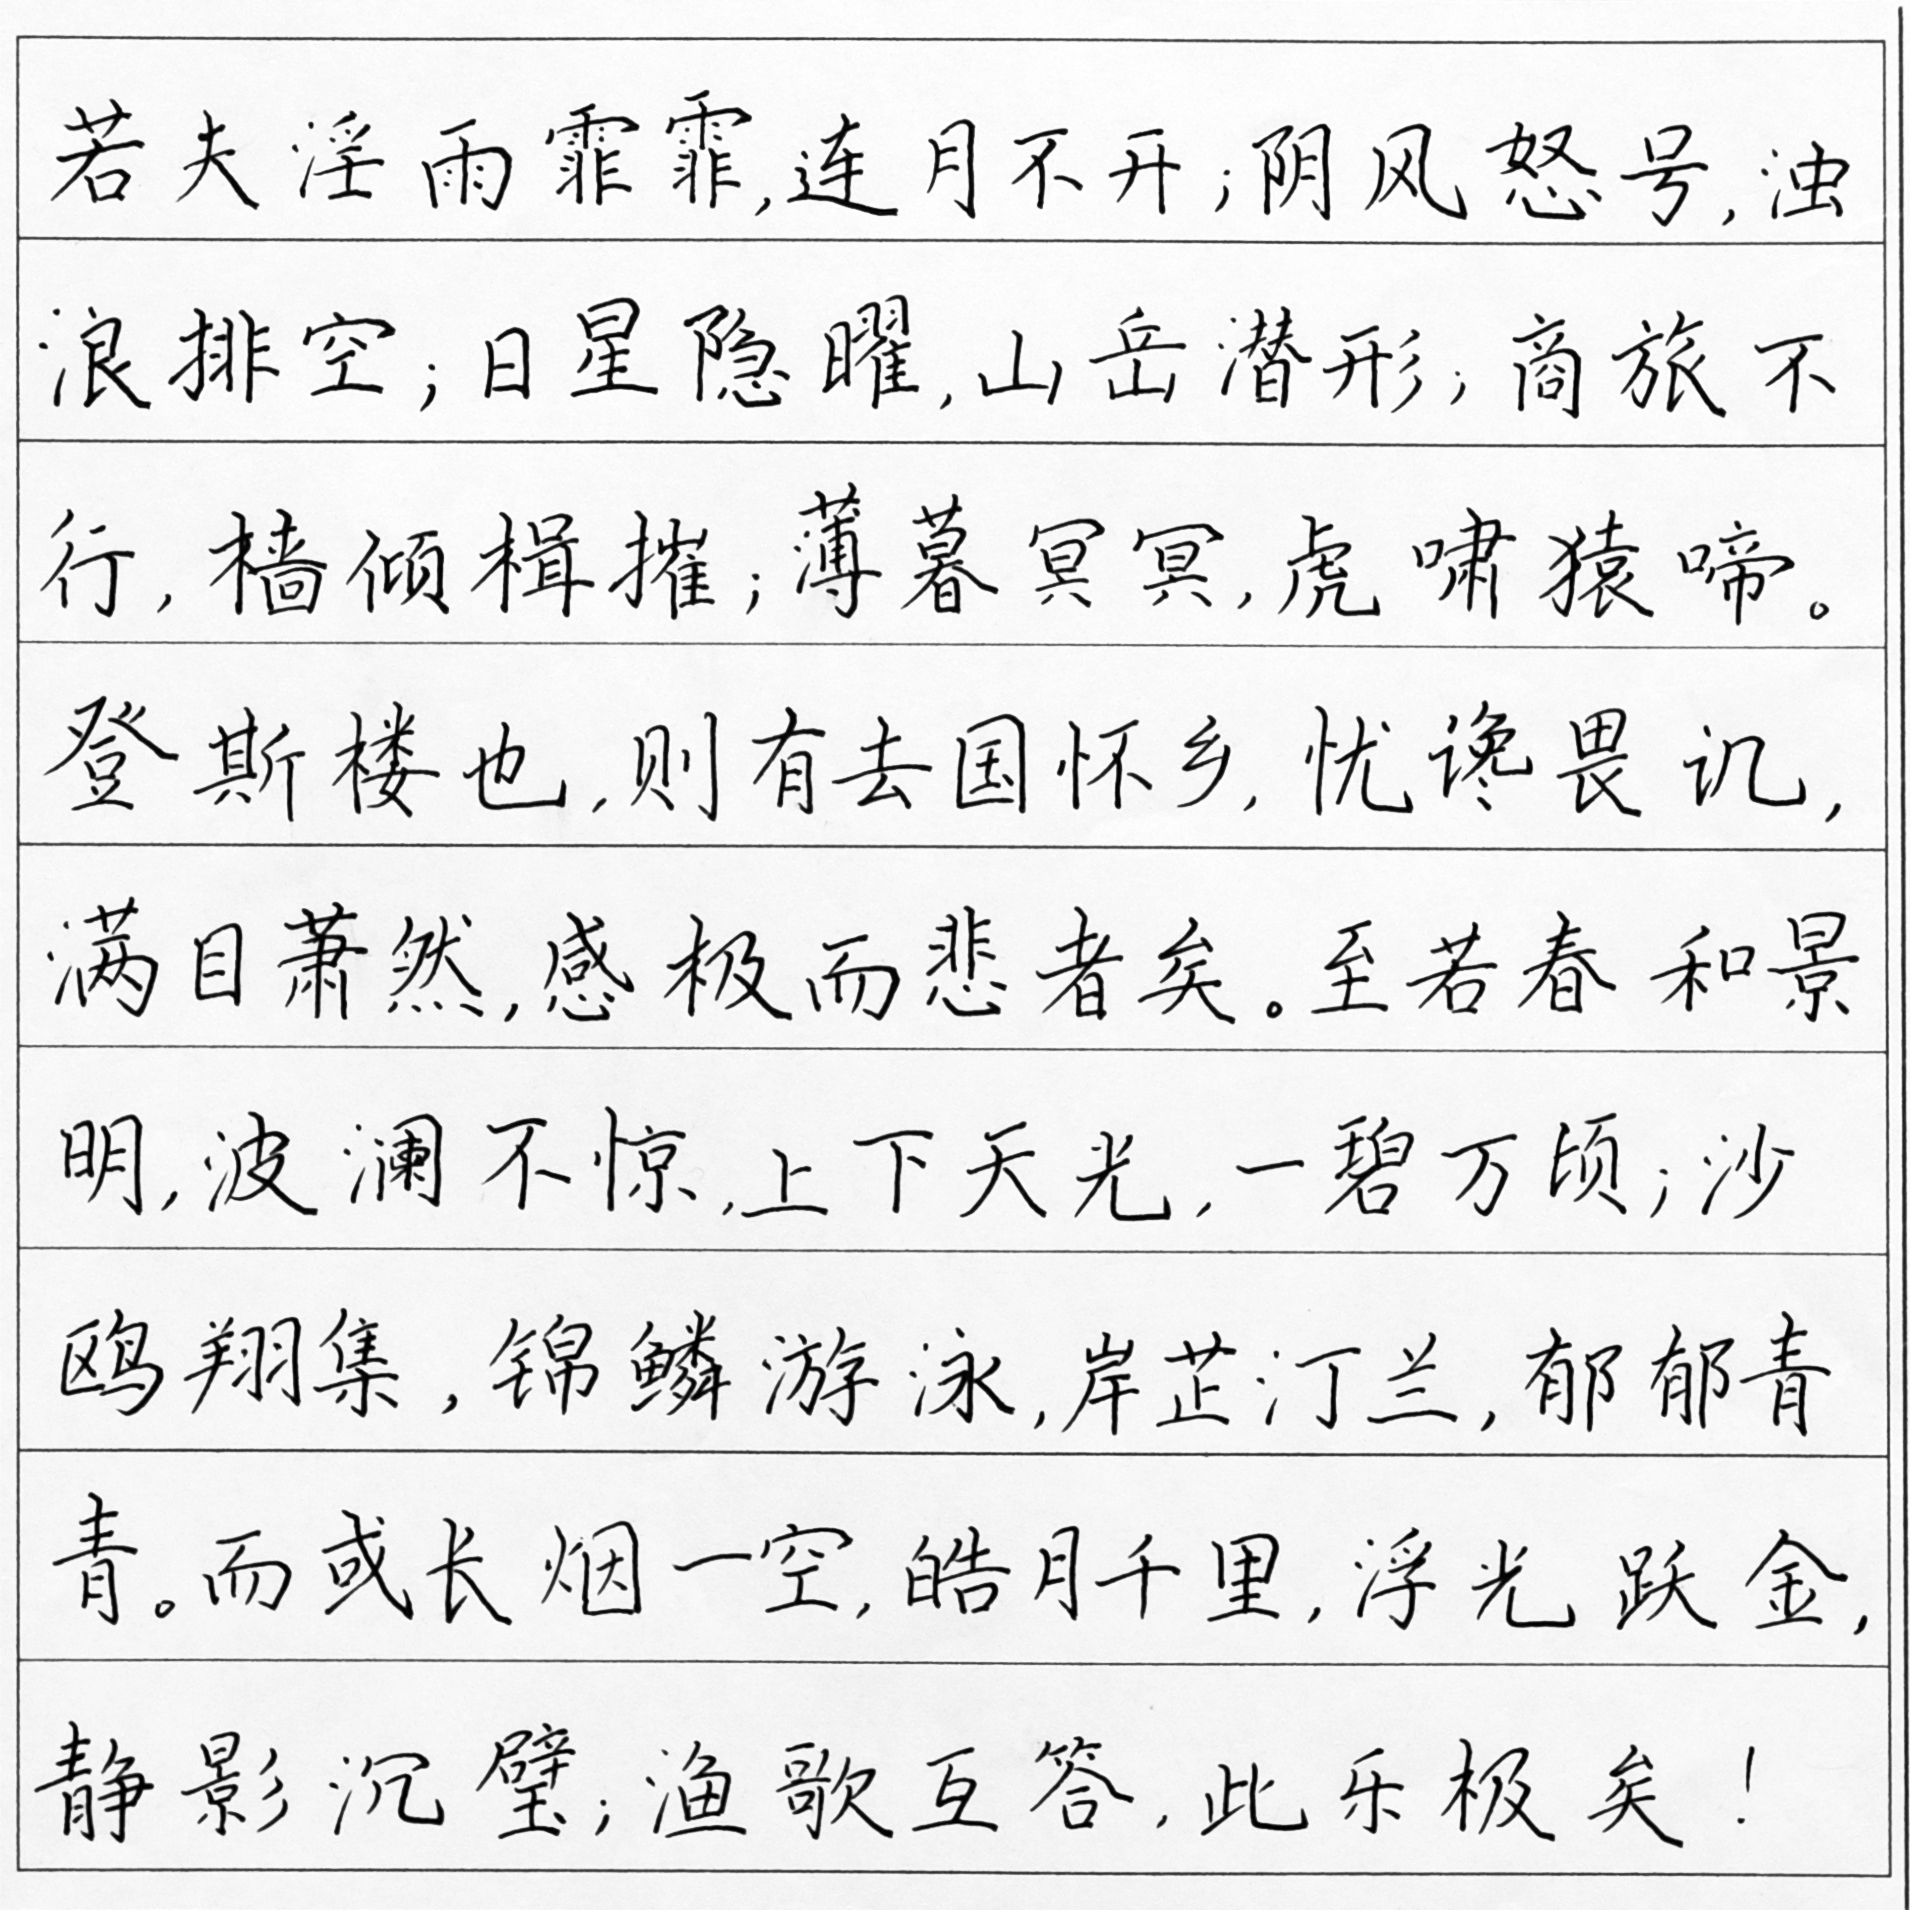 若夫淫雨霏霏,连月不开;阴风怒号,浊
浪排空;日星隐曜,山岳潜形;商旅不
行,樯倾楫摧;薄暮冥冥,虎啸猿啼。
登斯楼也,则有去国怀乡,忧谗畏讥,
满目萧然,感极而悲者矣。至若春和景
明,波澜不惊,上下天光,一碧万顷;沙
鸥翔集,锦鳞游泳,岸芷汀兰,郁郁青
青。而或长烟一空,皓月千里,浮光跃金,
静影沉璧;渔歌互答,此乐极矣!